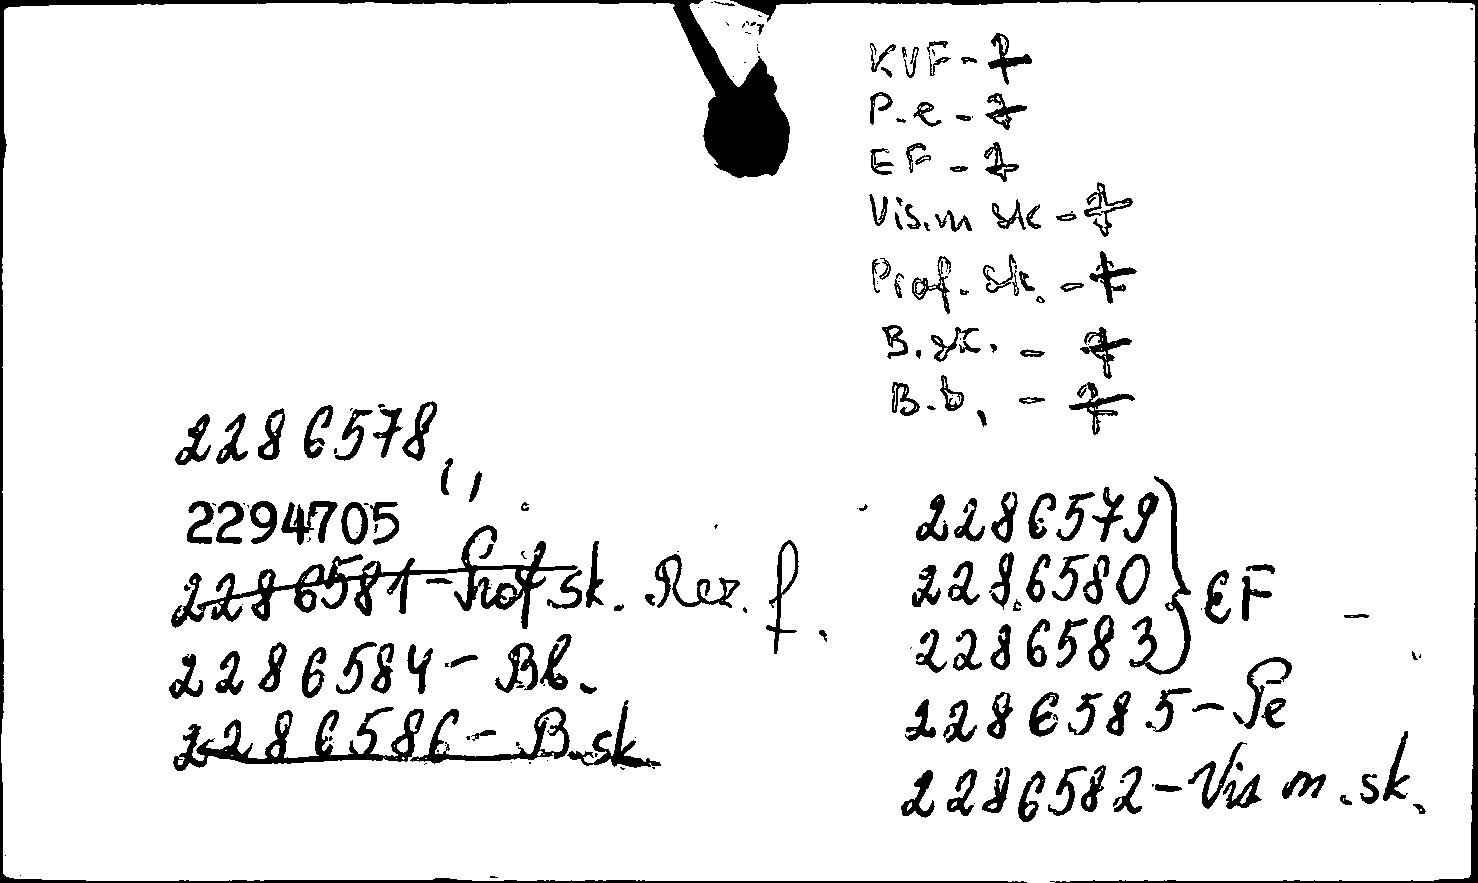 KVF - 1
P.e - 1
EF - 1
Vis.m sk - 1
Prof. sk. - 1
B.sk. - 1
B.b. - 1
2286578
2294705
2286581 - Prof.sk. Rez. f.
2286584 - Bb.
2286586 - B.sk.
2286579
2286580
2286583
EF
2286585 - Pe
2286582 - Vis m.sk.